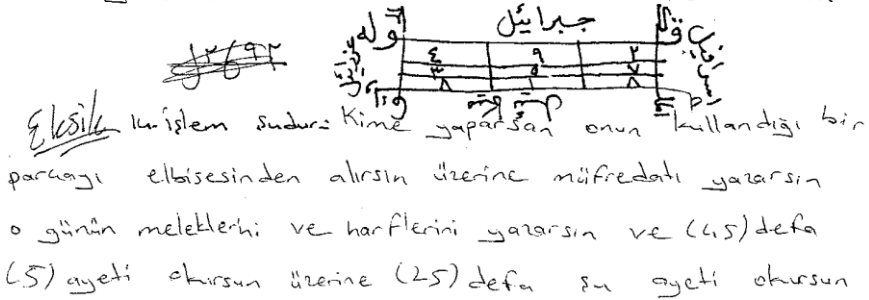 جبرائيل
قوله
٤ ٩ ٢
٣ ٥ ٧
٨ ١
Eksik bu işlem şudur: Kime yaparsan onun kullandığı bir
parçayı elbisesinden alırsın üzerine müfredatı yazarsın
o günün meleklerini ve harflerini yazarsın ve (45) defa
(5) ayeti okursun üzerine (25) defa şu ayeti okursun